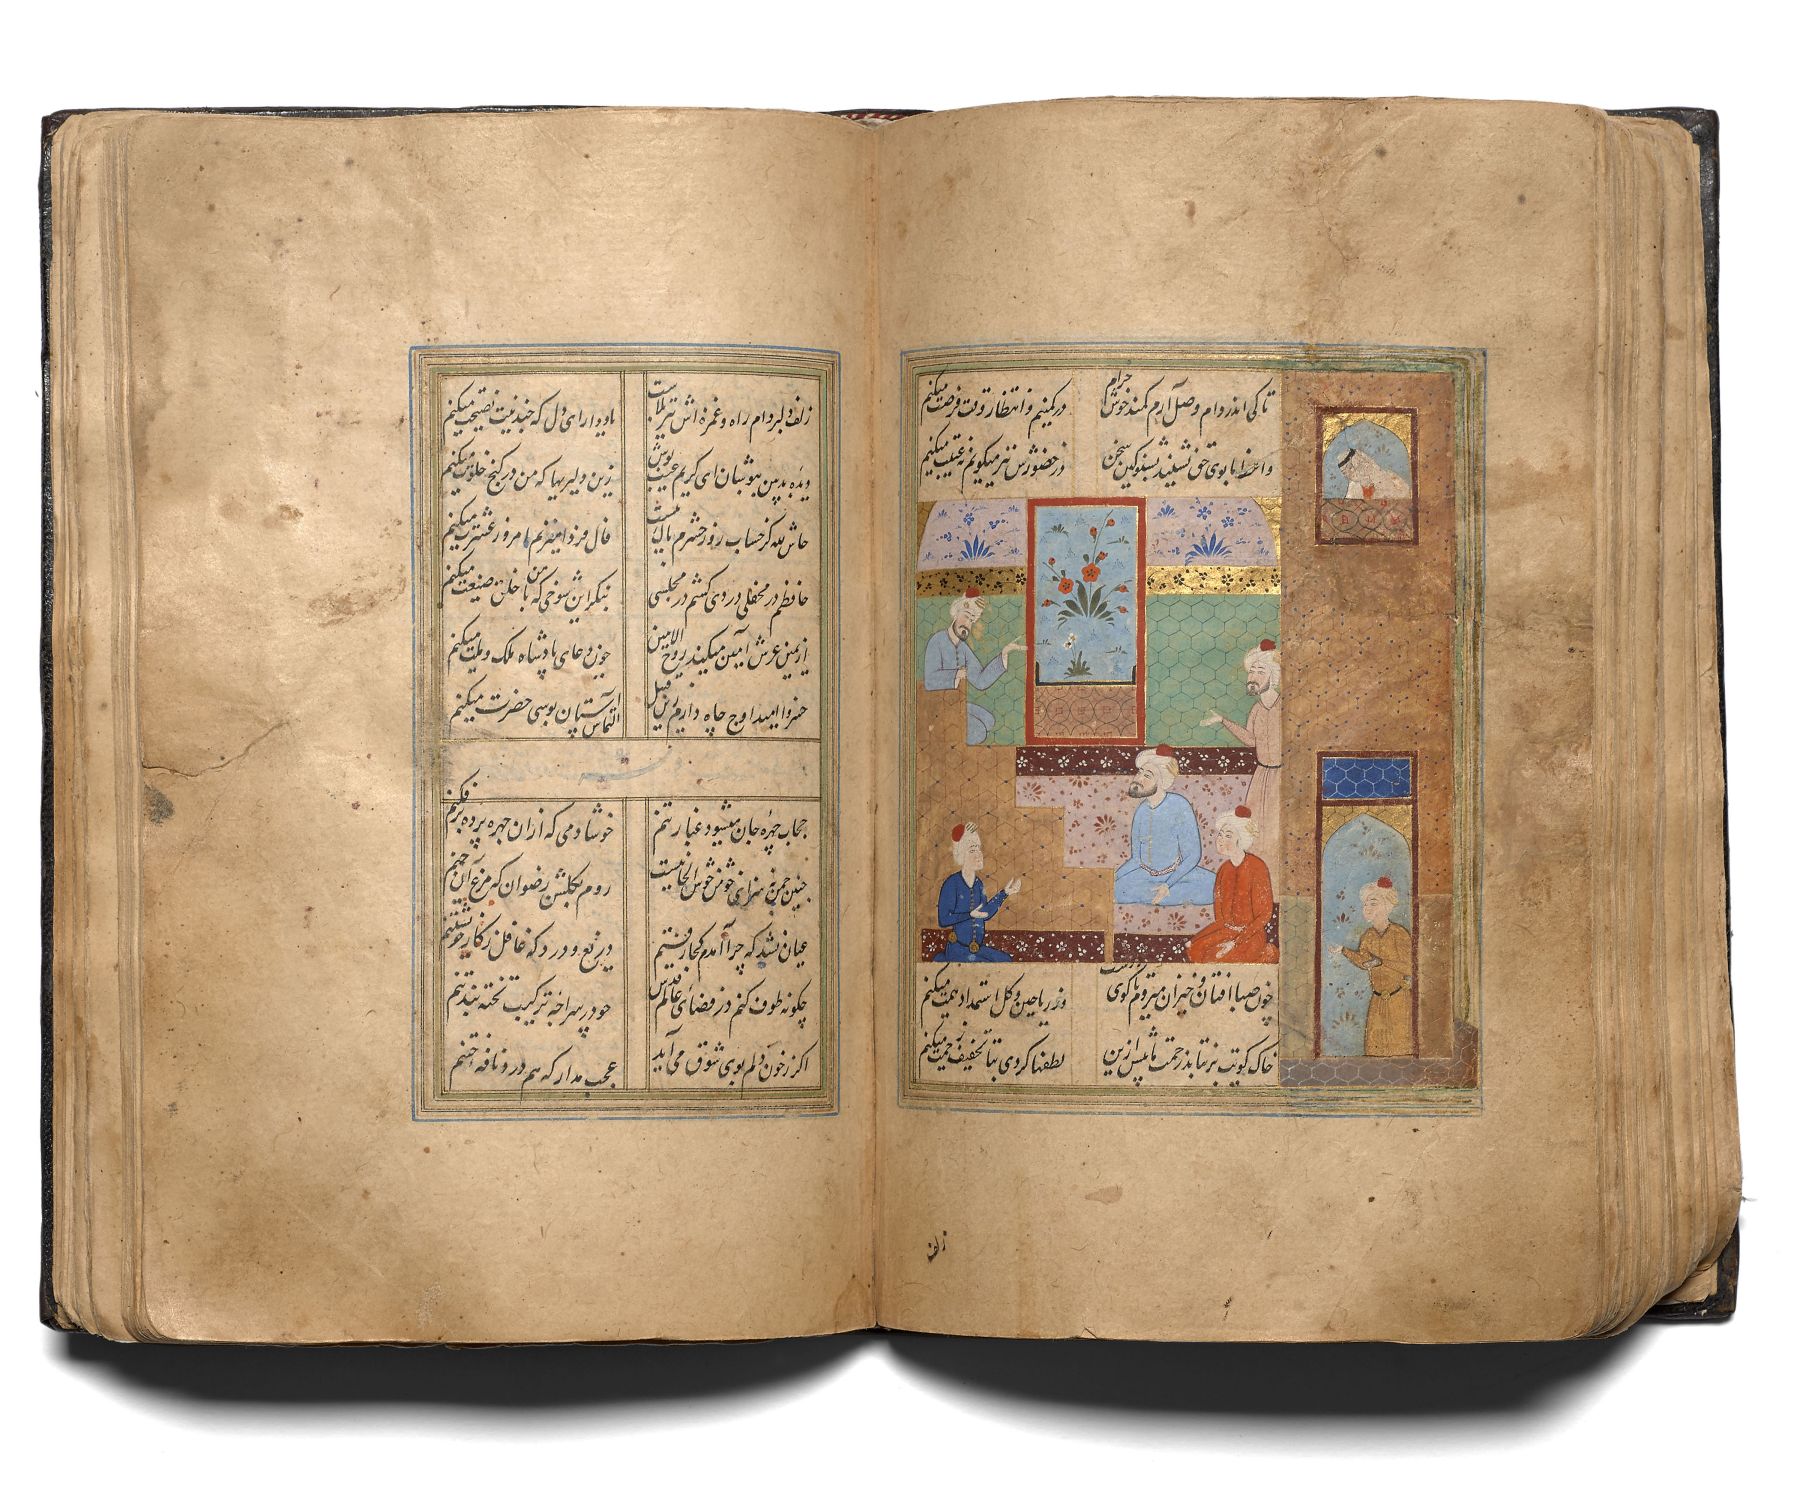 تا کی اندر دام وصل آرم کمند خوش خرام در کمینم و انتظار وقت فرصت میکنم
واعظ ما بوی حق نشنید بشنو کین سخن در حضورش نیز میگویم نه غیبت میکنم
چون صبا افتان و خیزان میروم تا کوی دوست وز ریاحین و گل استمداد همت میکنم
خاک کویت بر نتابد زحمت ما بیش ازین لطفها کردی بتا تخفیف زحمت میکنم
زلف
زلف دلبر دام راه و غمزه اش تیر بلاست یاد دار ای دل که چندینت نصیحت میکنم
دیده بد بین بپوشان ای کریم عیب پوش زین دلیریها که من در کنج خلوت میکنم
حاش لله کز حساب روز حشرم باک نیست فال فردا میزنم امروز عشرت میکنم
حافظم در محفلی دردی کشم در مجلسی بنگر این شوخی که من با خلق صنعت میکنم
از یمین عرش آمین میکند روح الامین چون دعای پادشاه ملک و ملت میکنم
خسروا امید اوج جاه دارم زین قبل التماس آستان بوسی حضرت میکنم
حجاب چهره جان میشود غبار تنم خوشا دمی که از ان چهره پرده برفکنم
چنین چمن نه سزای چو من خوش الحانیست روم بگلشن رضوان که مرغ آن چمنم
عیان نشد که چرا آمدم کجا رفتم دریغ و درد که غافل ز کار خویشتنم
چگونه طوف کنم در فضای عالم قدس چو در سراچه ترکیب تخته بند تنم
اگر ز خون دلم بوی شوق می آید عجب مدار که هم درد نافه ختنم